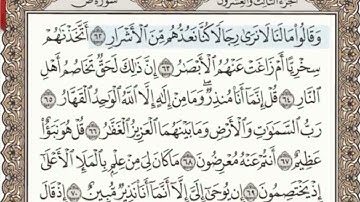 الجزء الثالث والعشرون سورة ص
وَقَالُوا۟ مَا لَنَا لَا نَرَىٰ رِجَالًا كُنَّا نَعُدُّهُم مِّنَ ٱلْأَشْرَارِ ٦٢ أَتَّخَذْنَٰهُمْ
سِخْرِيًّا أَمْ زَاغَتْ عَنْهُمُ ٱلْأَبْصَٰرُ ٦٣ إِنَّ ذَٰلِكَ لَحَقٌّ تَخَاصُمُ أَهْلِ
ٱلنَّارِ ٦٤ قُلْ إِنَّمَآ أَنَا۠ مُنذِرٌ ۖ وَمَا مِنْ إِلَٰهٍ إِلَّا ٱللَّهُ ٱلْوَٰحِدُ ٱلْقَهَّارُ ٦٥
رَبُّ ٱلسَّمَٰوَٰتِ وَٱلْأَرْضِ وَمَا بَيْنَهُمَا ٱلْعَزِيزُ ٱلْغَفَّٰرُ ٦٦ قُلْ هُوَ نَبَؤٌا۟
عَظِيمٌ ٦٧ أَنتُمْ عَنْهُ مُعْرِضُونَ ٦٨ مَا كَانَ لِىَ مِنْ عِلْمٍۭ بِٱلْمَلَإِ ٱلْأَعْلَىٰٓ
إِذْ يَخْتَصِمُونَ ٦٩ إِن يُوحَىٰٓ إِلَىَّ إِلَّآ أَنَّمَآ أَنَا۠ نَذِيرٌ مُّبِينٌ ٧٠ إِذْ قَالَ